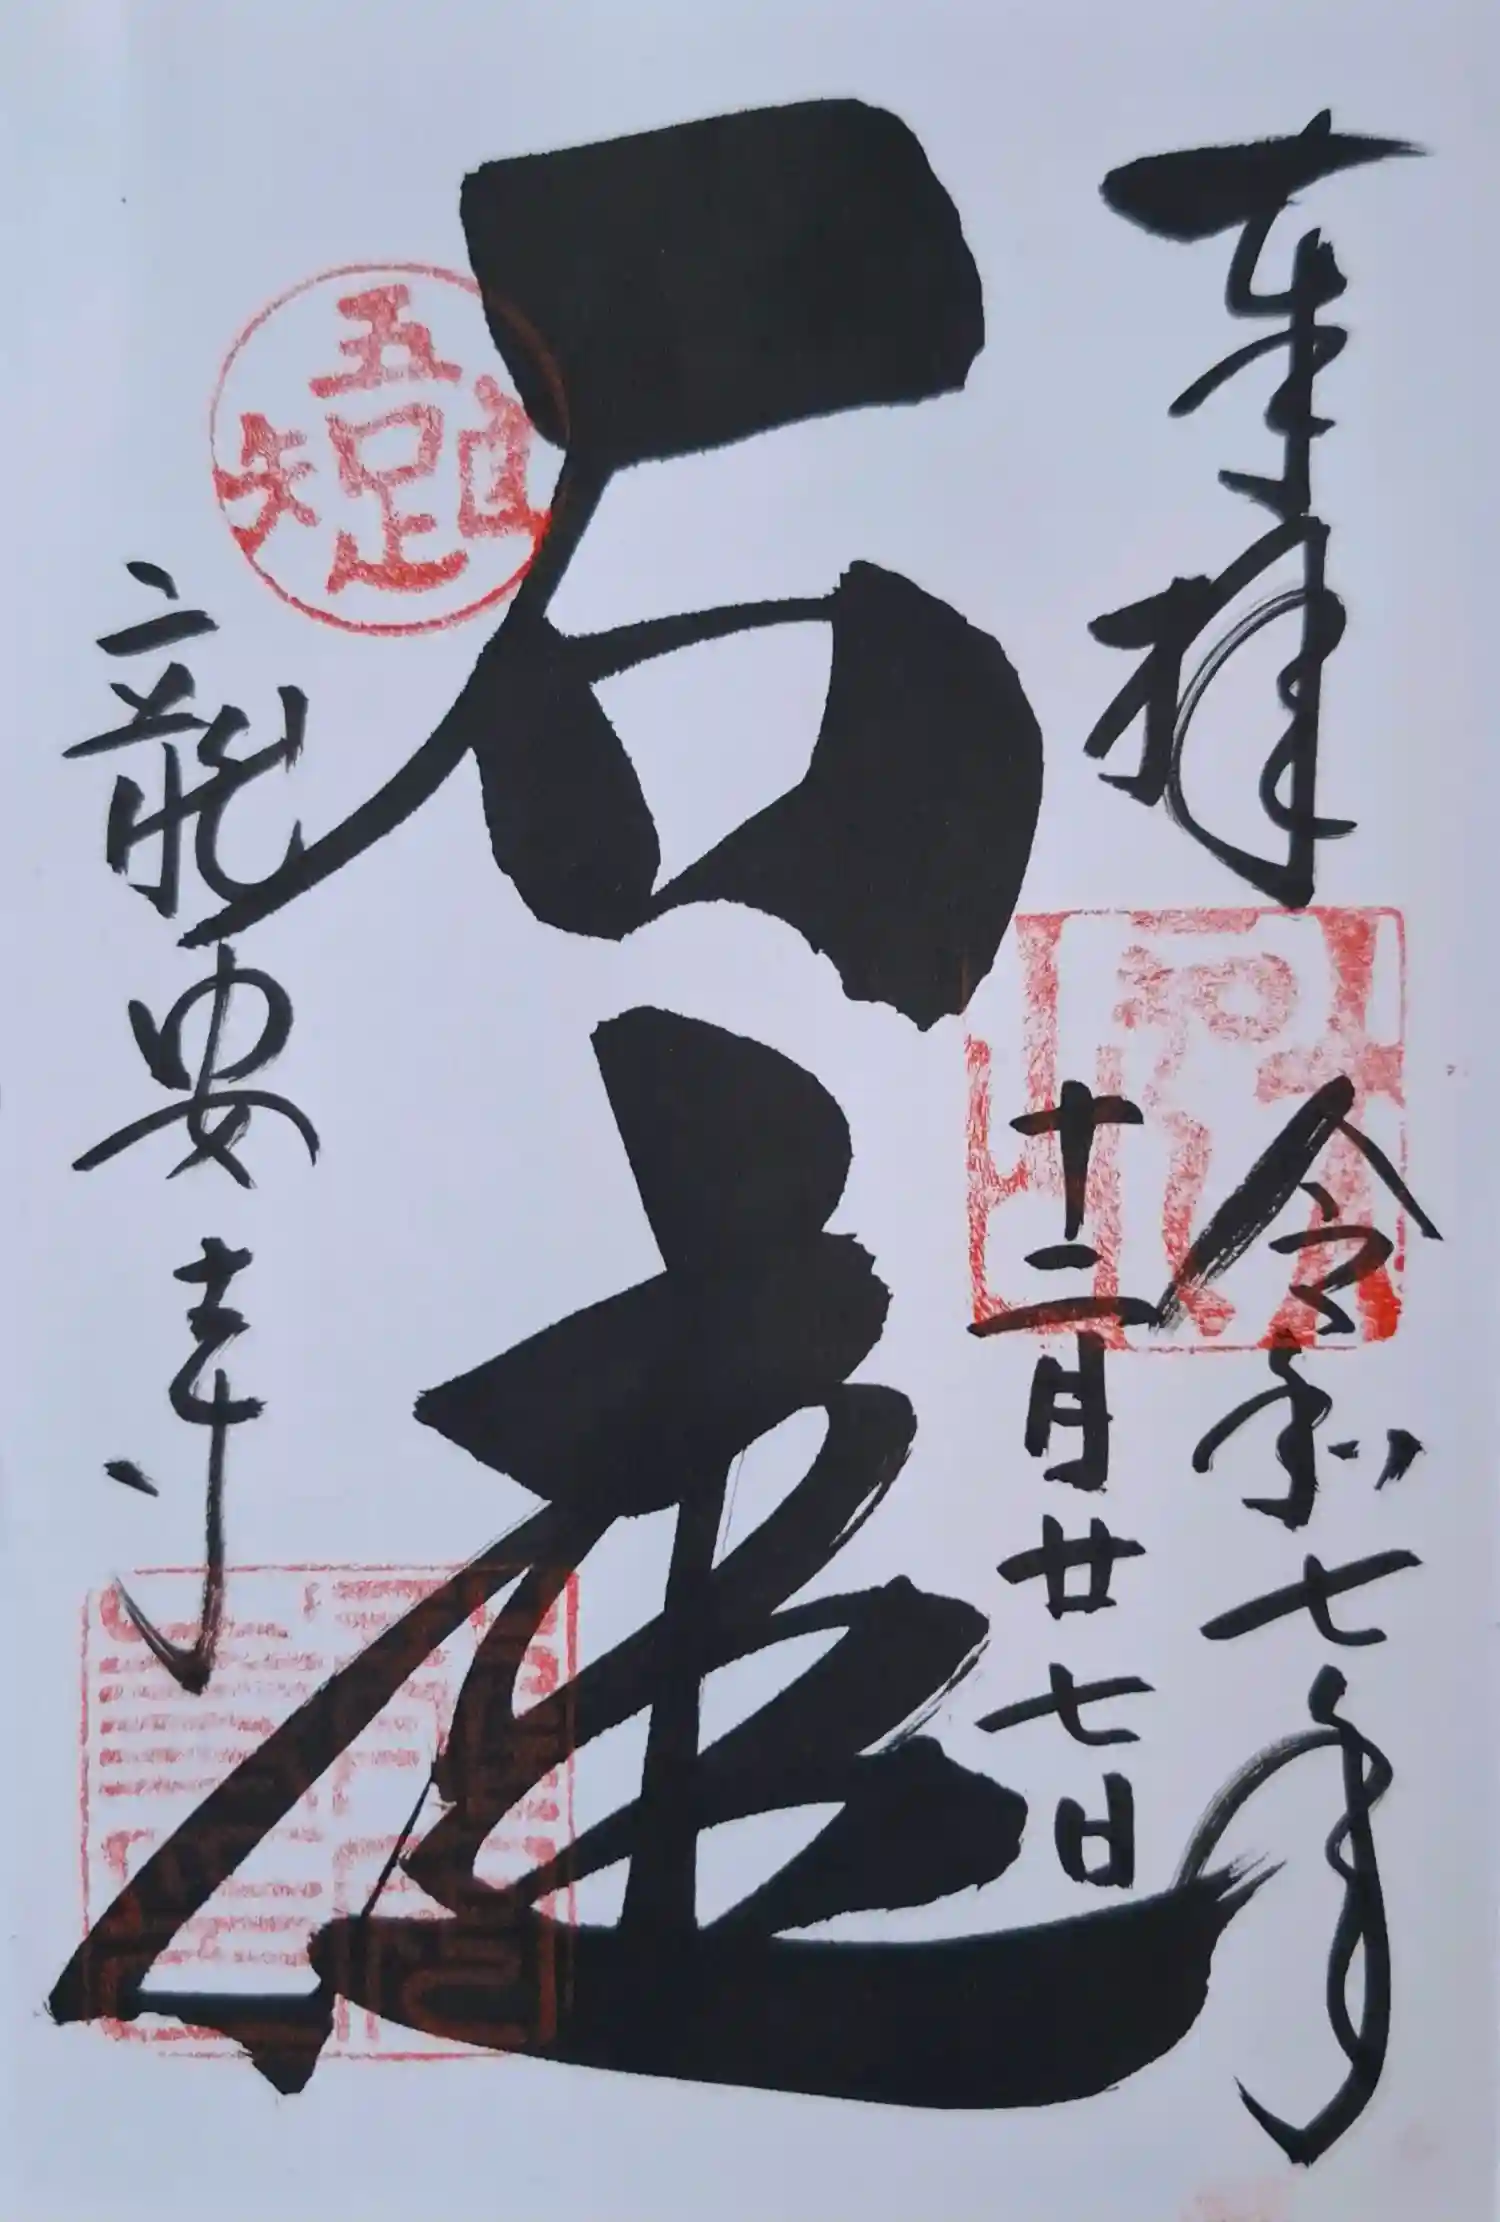 奉拝
令和七年
十二月廿七日
石庭
龍安寺
吾唯足知